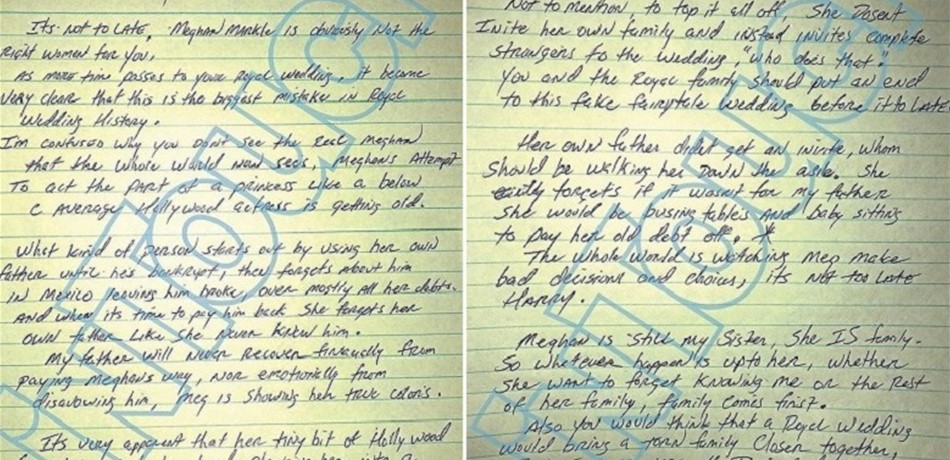 Its not to late, Meghan Markle is obviously Not the
right women for you.
As more time passes to your royal wedding, it became
very clear that this is the biggest mistake in Royal
wedding History.
Im confused why you don't see the real Meghan
that the whole world now sees, Meghans Attempt
To act the part of a princess like a below
C average Hollywood actress is getting old.
What kind of person starts out by using her own
father until he's bankrupt, then forgets about him
in Mexico leaving him broke, over mostly all her debts.
And when its time to pay him back she forgets her
own father like she never knew him.
My father will never recover financially from
paying Meghans way, nor emotionally from
disavowing him, Meg is showing heh true colors.
Its very apparent that her tiny bit of Hollywood
Not to mention, to top it all off, She Dosent
Invite her own family and instead invites complete
strangers to the wedding, "who does that."
You and the Royal family should put an end
to this fake fairytale wedding before it to late
Her own father didnt get an invite, whom
should be walking her Down the aisle. She
forgets if it wasnt for my father
she would be busing tables And baby sitting
to pay her old debt off. *
The whole world is watching Meg make
bad decisions and choices, its Not too late
HARRY.
Meghan is still my Sister, She IS family.
So whatever happen is upto her, whether
she want to forget knowing me or the Rest
of her family, family comes first.
Also you would think that a Royal wedding
would bring a torn family closer together,